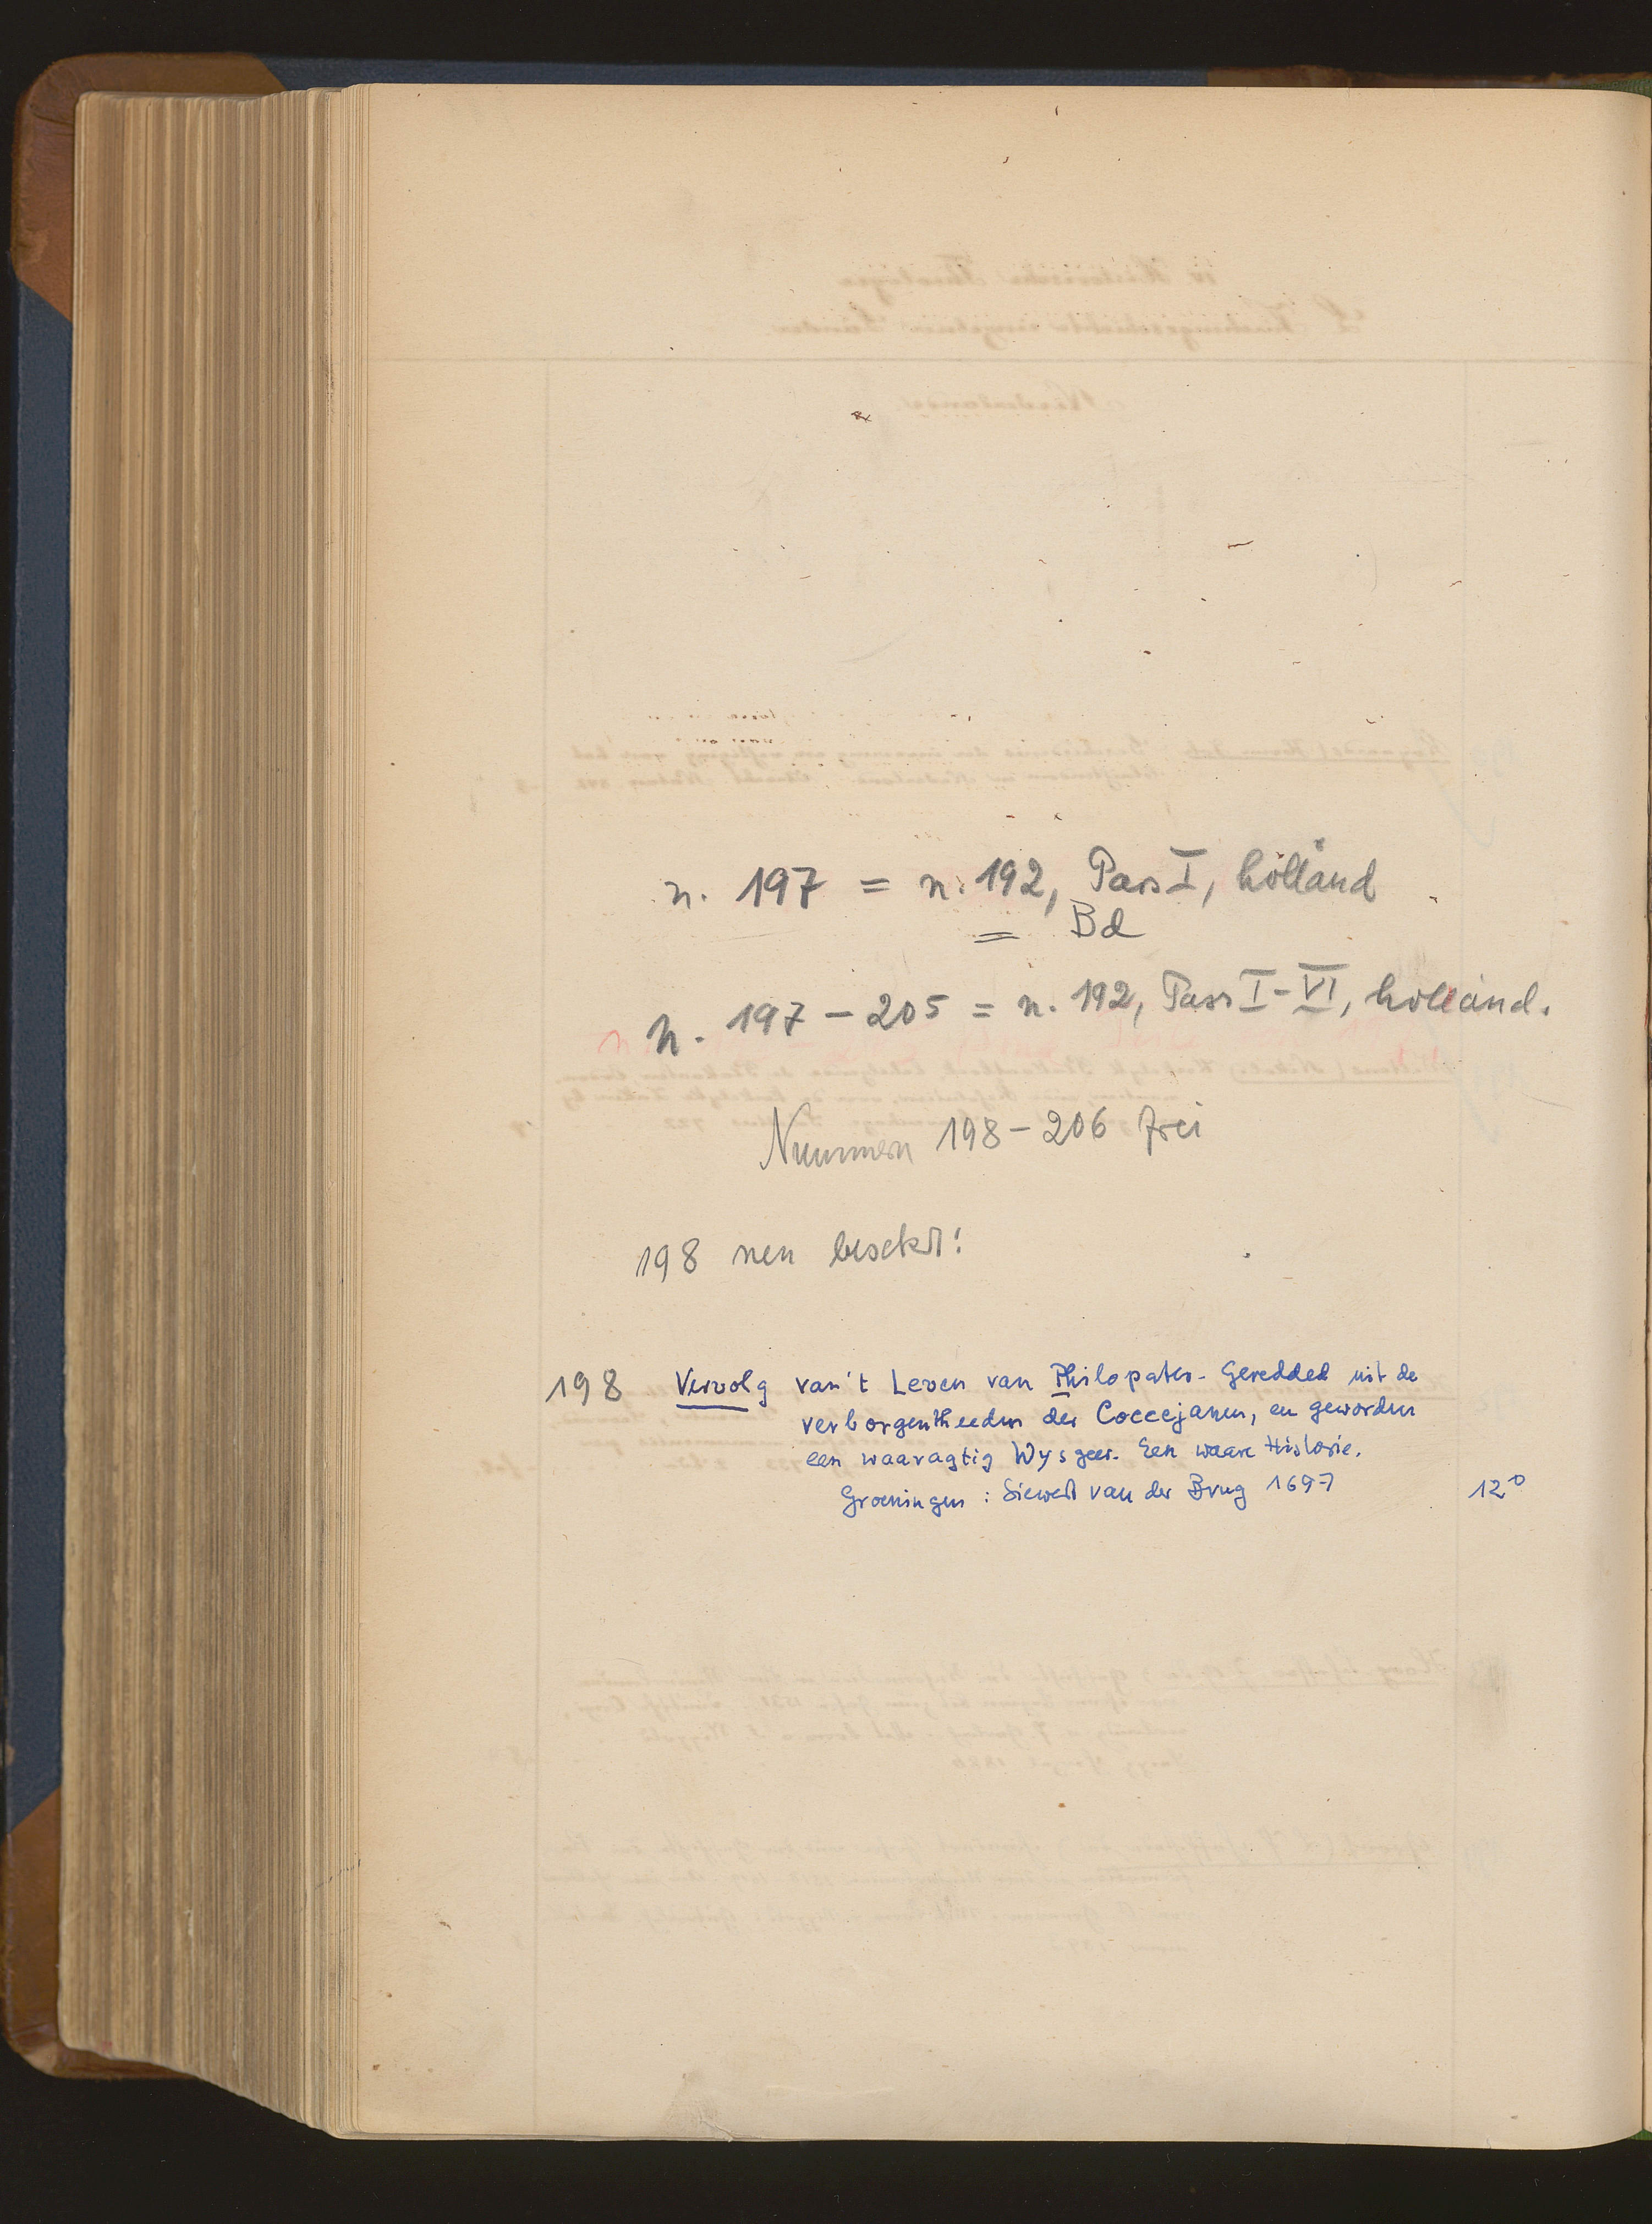 n. 197 = n. 192, Pars I, holländ
= Bd
n. 197 - 205 = n. 192, Pars I - VI, holländ.
Nummern 198 - 206 frei
198 neu besetzt!
198 Vervolg van't Leven van Philopater. Gereddet uit de
verborgentheeden der Coccejanen, en geworden
een waaragtig Wysgeer. Een waare Historie.
Groeningen : Siewert van der Brug 1697 12°